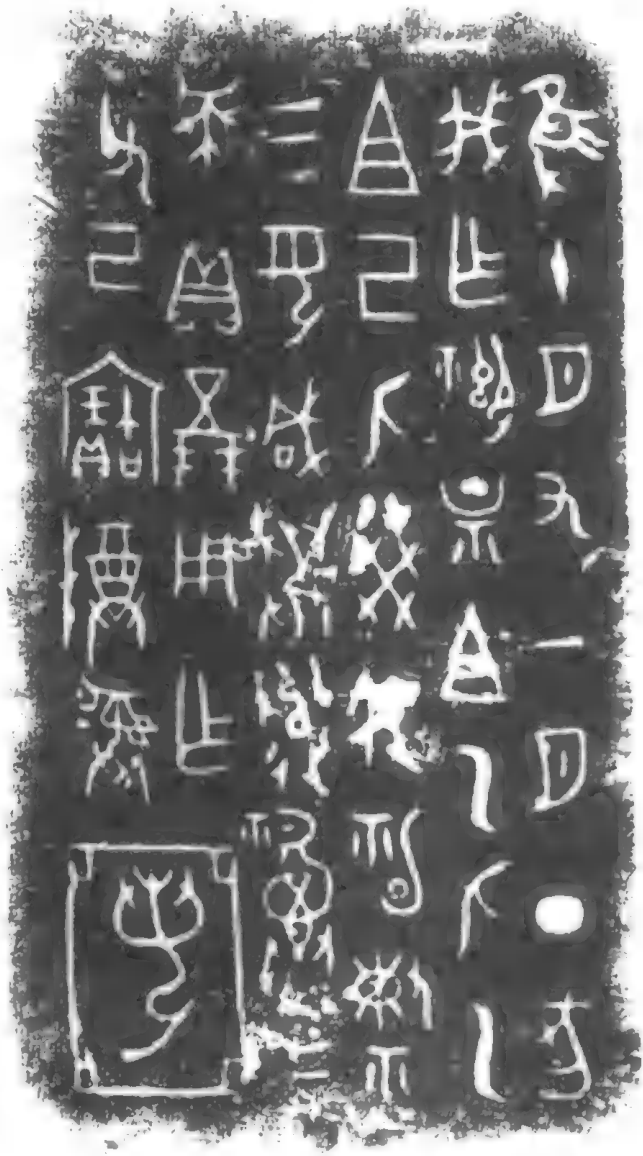 隹十月又一月丁亥
我乍禦且乙匕乙
且己匕癸礿
二女咸遣二
貝五朋用乍
父己寶彝
亞若